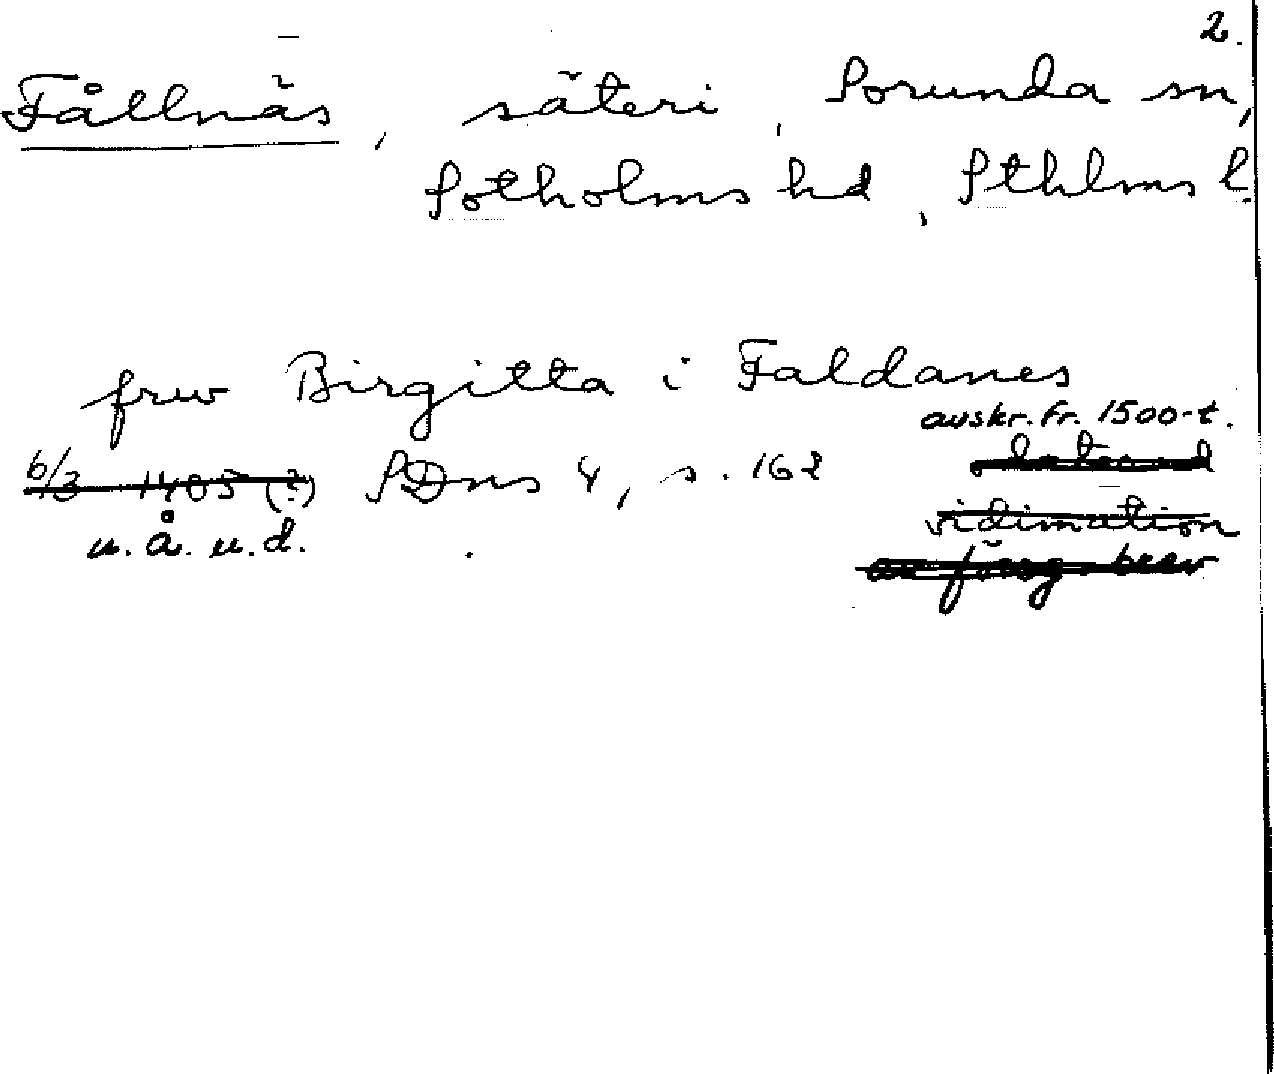 2.
Fållnäs, säteri, Sorunda sn,
Sotholms hd, Sthlms l.
frw Birgitta i Faldanes
avskr. fr. 1500-t.
6/3 1405 (?) SDns 4, s. 162
daterad
u. å. u. d.
vidimation
av föreg. brev